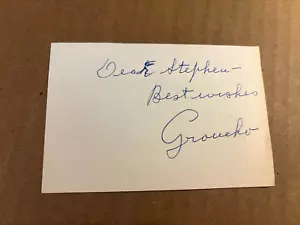 Dear Stephen—
Best wishes
Groucho